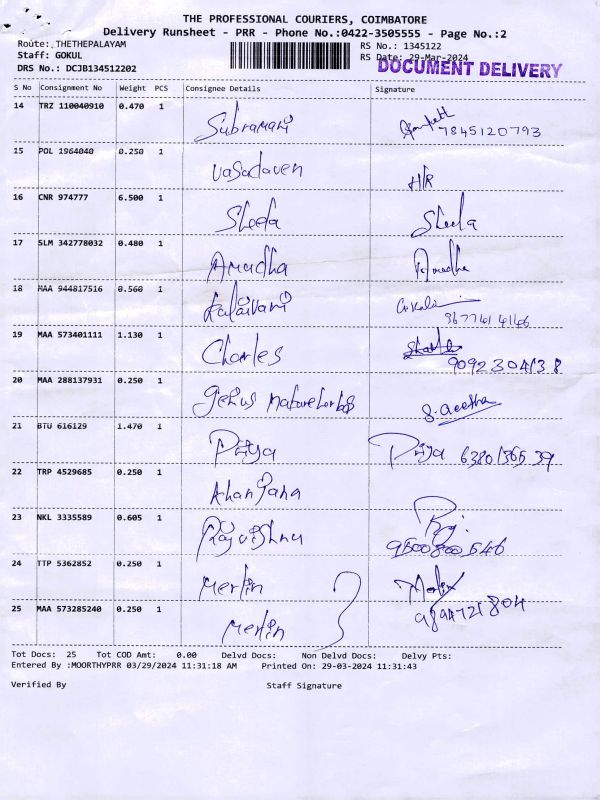 THE PROFESSIONAL COURIERS, COIMBATORE
Delivery Runsheet - PRR - Phone No.:0422-3505555 - Page No.:2
Route: THETHEPALAYAM RS No.: 1345122
Staff: GOKUL RS Date: 29-Mar-2024
DRS No.: DCJB134512202 DOCUMENT DELIVERY
S No Consignment No Weight PCS Consignee Details Signature
14 TRZ 110040910 0.470 1 Subramani 7845120793
15 POL 1964040 0.250 1 Vasadaven HR
16 CNR 974777 6.500 1 Sheela Sheela
17 SLM 342778032 0.480 1 Anudha Anudha
18 MAA 944817516 0.560 1 Kalaivani
19 MAA 573401111 1.130 1 Charles
20 MAA 288137931 0.250 1
21 BTU 616129 1.470 1 Priya Priya
22 TRP 4529685 0.250 1
23 NKL 3335589 0.605 1 Rajvishnu
24 TTP 5362852 0.250 1 Merlin
25 MAA 573285240 0.250 1 Merlin
Tot Docs: 25 Tot COD Amt: 0.00 Delvd Docs: Non Delvd Docs: Delvy Pts:
Entered By :MOORTHYPRR 03/29/2024 11:31:18 AM Printed On: 29-03-2024 11:31:43
Verified By Staff Signature